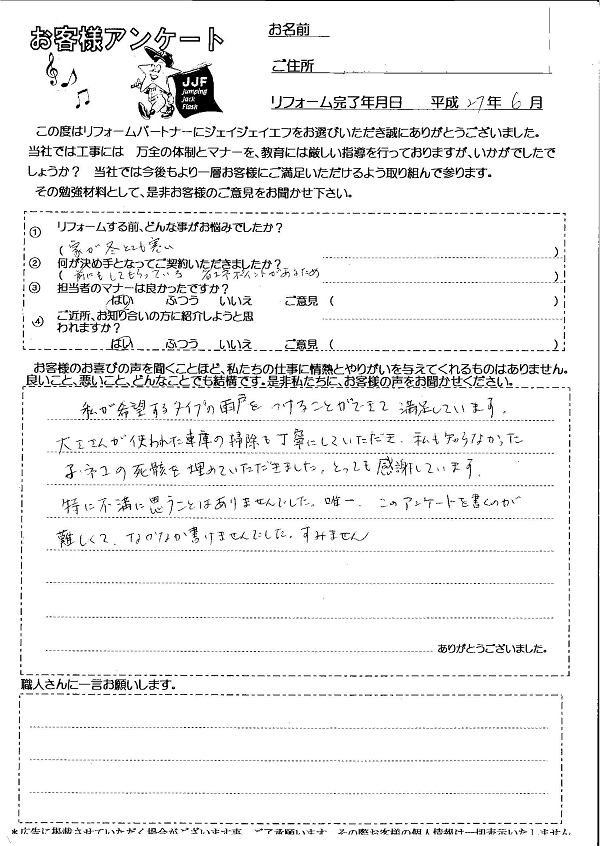 お客様アンケート
JJF
Jumping
Jack
Flash
お名前
ご住所
リフォーム完了年月日 平成27年6月
この度はリフォームパートナーにジェイジェイエフをお選びいただき誠にありがとうございました。
当社では工事には 万全の体制とマナーを、教育には厳しい指導を行っておりますが、いかがでしたで
しょうか? 当社では今後もより一層お客様にご満足いただけるよう取り組んで参ります。
その勉強材料として、是非お客様のご意見をお聞かせ下さい。
① リフォームする前、どんな事がお悩みでしたか?
( 家が冬とても寒い )
② 何が決め手となってご契約いただきましたか?
( 前にもしてもらっている 省エネポイントがあるため )
③ 担当者のマナーは良かったですか?
はい ふつう いいえ ご意見 ( )
④ ご近所、お知り合いの方に紹介しようと思
われますか?
はい ふつう いいえ ご意見 ( )
お客様のお喜びの声を聞くことほど、私たちの仕事に情熱とやりがいを与えてくれるものはありません。
良いこと、悪いこと、どんなことでも結構です。是非私たちに、お客様の声をお聞かせください。
私が希望するタイプの雨戸をつけることができて満足しています。
大工さんが使われた車庫の掃除も丁寧にしていただき、私も知らなかった
子ネコの死骸を埋めていただきました。とっても感謝しています。
特に不満に思うことはありませんでした。唯一、このアンケートを書くのが
難しくて、なかなか書けませんでした。すみません
ありがとうございました。
職人さんに一言お願いします。
*広告に掲載させていただく場合がございます事、ご了承願います。その際お客様の個人情報は一切表示いたしません